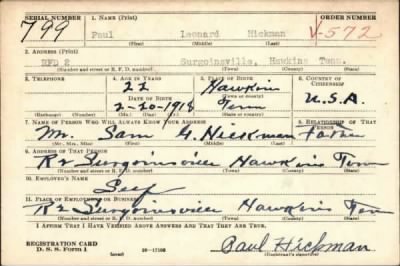 SERIAL NUMBER 1. NAME (Print) ORDER NUMBER
799 Paul Leonard Hickman V-572
(First) (Middle) (Last)
2. ADDRESS (Print)
RFD 2 Surgoinsville, Hawkins Tenn.
(Number and street or R. F. D. number) (Town) (County) (State)
3. TELEPHONE 4. AGE IN YEARS 5. PLACE OF BIRTH 6. COUNTRY OF CITIZENSHIP
22 Hawkins
DATE OF BIRTH (Town or county)
2-20-1918 Tenn U.S.A.
(Exchange) (Number) (Mo.) (Day) (Yr.) (State or country)
7. NAME OF PERSON WHO WILL ALWAYS KNOW YOUR ADDRESS 8. RELATIONSHIP OF THAT PERSON
Mr. Sam G. Hickman Father
(Mr., Mrs., Miss) (First) (Middle) (Last)
9. ADDRESS OF THAT PERSON
R2 Surgoinsville Hawkins Tenn
(Number and street or R. F. D. number) (Town) (County) (State)
10. EMPLOYER'S NAME
Self
11. PLACE OF EMPLOYMENT OR BUSINESS
R2 Surgoinsville Hawkins Ten
(Number and street or R. F. D. number) (Town) (County) (State)
I AFFIRM THAT I HAVE VERIFIED ABOVE ANSWERS AND THAT THEY ARE TRUE.
REGISTRATION CARD
D. S. S. Form 1 Paul Hickman
(over) (Registrant's signature)